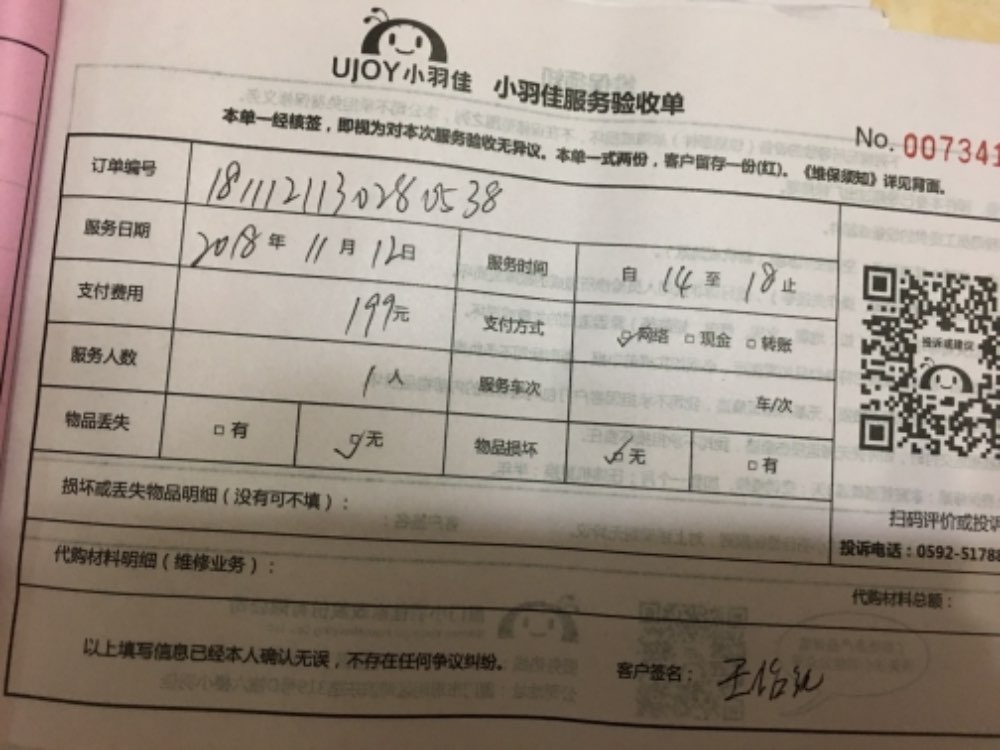 UJOY小羽佳 小羽佳服务验收单
本单一经核签，即视为对本次服务验收无异议。本单一式两份，客户留存一份(红)。《维保须知》详见背面。
No. 007341
订单编号 1811121130280538
服务日期 2018 年 11 月 12 日 服务时间 自 14 至 18 止
支付费用 199元 支付方式 网络 现金 转账
服务人数 1人 服务车次 车/次
物品丢失 有 无 物品损坏 无 有
投诉或建议
损坏或丢失物品明细（没有可不填）：
扫码评价或投诉
投诉电话：0592-51788
代购材料明细（维修业务）：
代购材料总额：
以上填写信息已经本人确认无误，不存在任何争议纠纷。
客户签名：王怡红